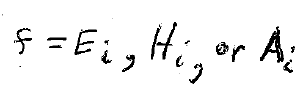 f = E_i, H_i, or A_i